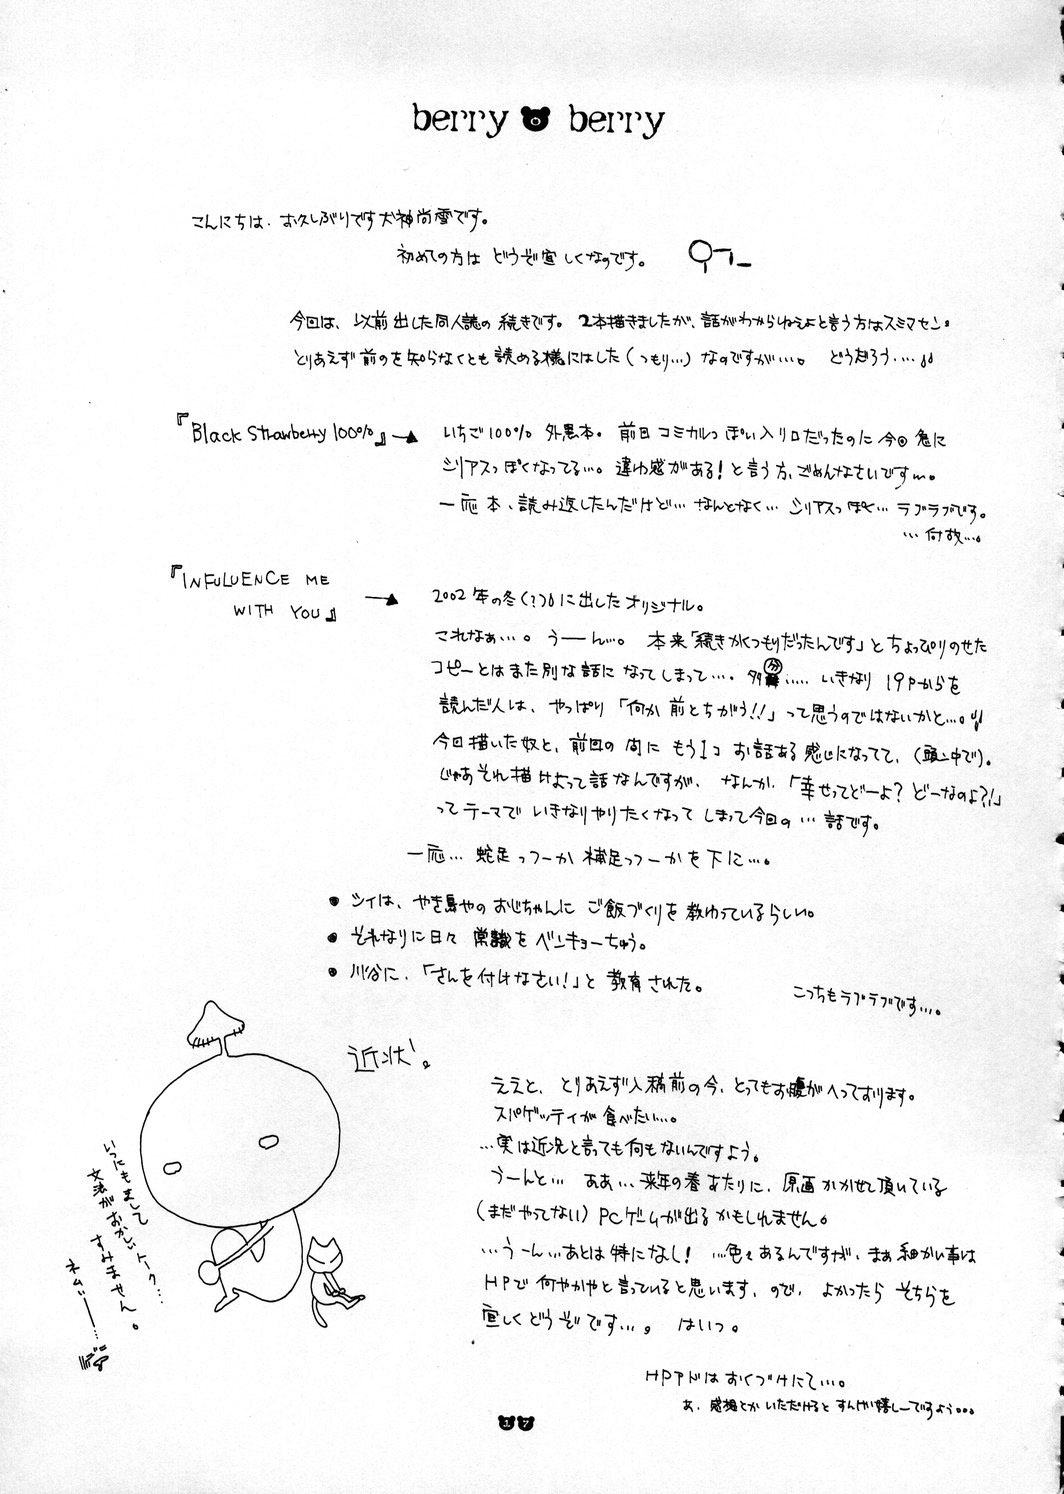 berry berry
こんにちは、お久しぶりです犬神尚雪です。
初めての方は どうぞ宜しくなのです。
今回は、以前出した同人誌の続きです。2本描きましたが、話がわからねぇよと言う方はスミマセン。
とりあえず前のを知らなくとも読める様にはした(つもり…)なのですが…。 どうだろう….
『Black Strawberry 100%』→ いちご100% 外黒本。前回コミカルっぽい入り口だったのに今回急に
シリアスっぽくなってる…。違わ感がある!と言う方、ごめんなさいですm。
一応本、読み返したんだけど… なんとなく… シリアスっぽく… ラブラブです。
…何故…。
『INFULUENCE ME
WITH YOU』→
2002年の冬(?)に出したオリジナル。
これなぁ…。うーん…。 本来「続きかくつもりだったんです」とちょっぴりのせた
コピーとはまた別な話になってしまって…. 多分….. いきなり19Pからを
読んだ人は、やっぱり「何か前とちがう!!」って思うのではないかと…。
今回描いた奴と、前回の間にもう1コ お話ある感じになってて、(頭ン中で)。
じゃあそれ描けよって話なんですが、 なんか、「幸せってどーよ? どーなのよ?!」
ってテーマで いきなりやりたくなって しまって今回の…話です。
一応… 蛇足っつーか 補足っつーかを下に…。
● シィは、やき鳥やのおじちゃんに ご飯づくりを教わっているらしい。
● それなりに日々 常識を ベンキョーちゅう。
● 川谷に、「さんを付けなさい!」と 教育された。
こっちもラブラブです…。
近状。
ええと、とりあえず入稿前の今、とってもお腹がへっております。
スパゲッティが食べたい…。
…実は近況と言っても何もないんですよう。
うーんと… ああ…来年の春あたりに、原画かかせて頂いている
(まだやってない)PCゲームが出るかもしれません。
…うーん…あとは特になし! …色々あるんですが、まぁ細かい事は
HPで何やかやと言っていると思います、ので、よかったら そちらを
宜しくどうぞです…。 はいっ。
いつにもまして
文法がおかしいトーク…
すみません。
ネムいー…
HPアドはおくづけにて…。
あ、感想とかいただけるとすんげい嬉しーですよう…
17